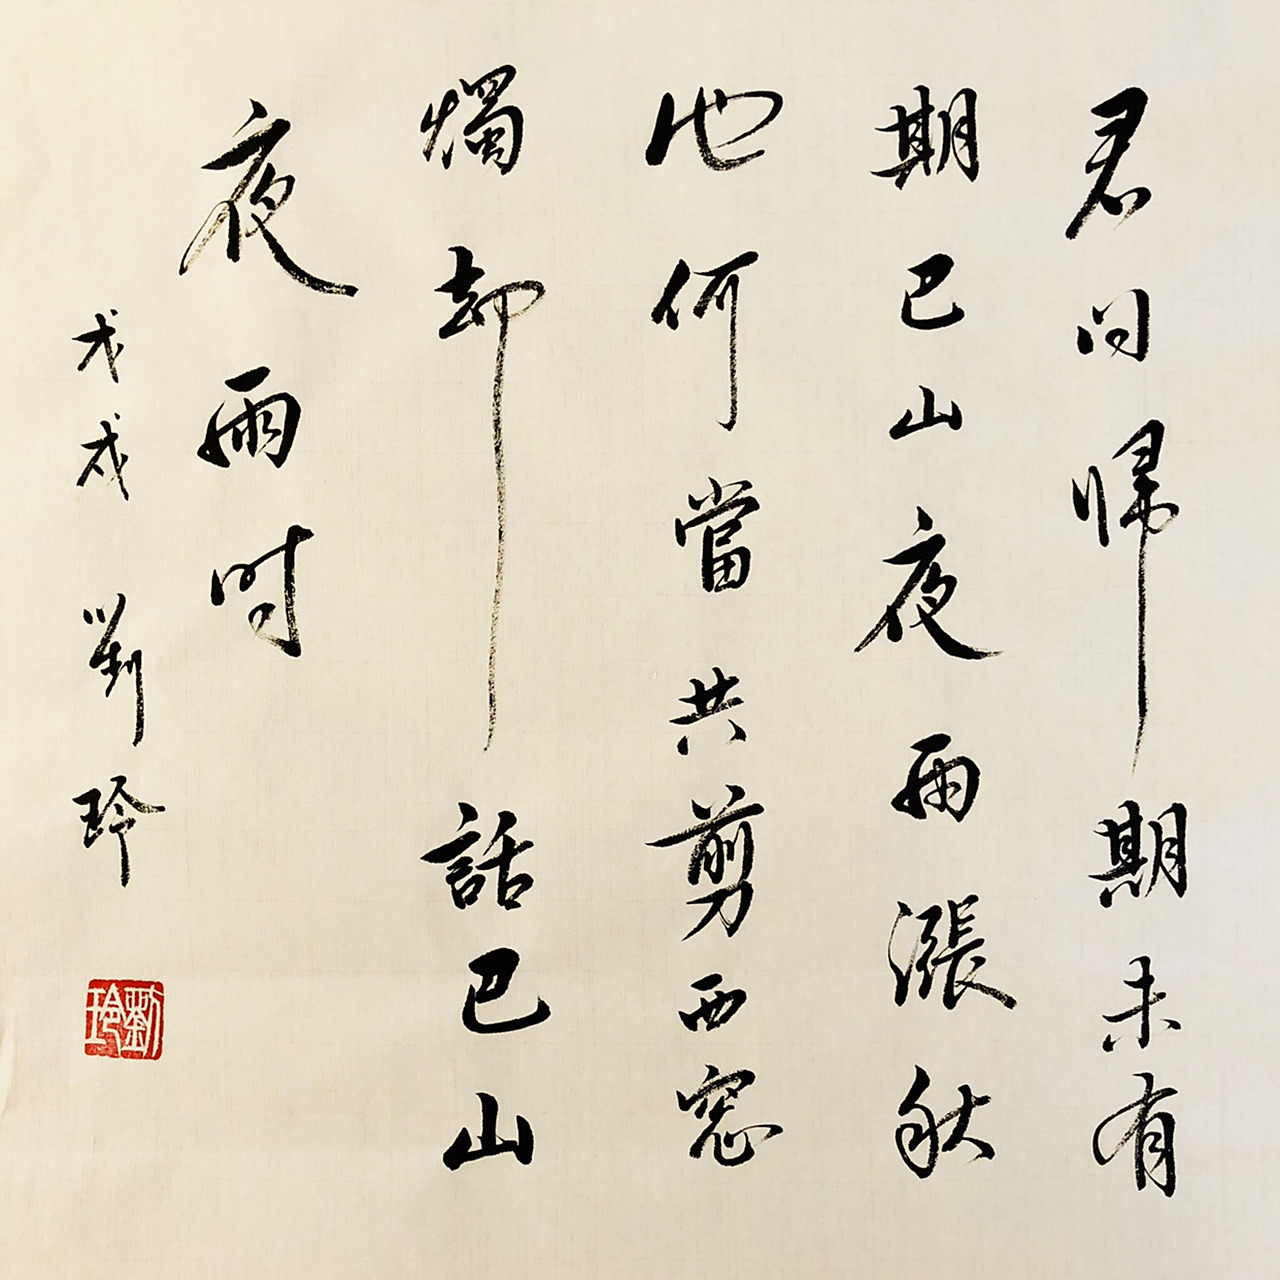 君问歸期未有
期巴山夜雨漲秋
池何當共剪西窓
燭却話巴山
夜雨时
戊戌 劉玲
劉玲